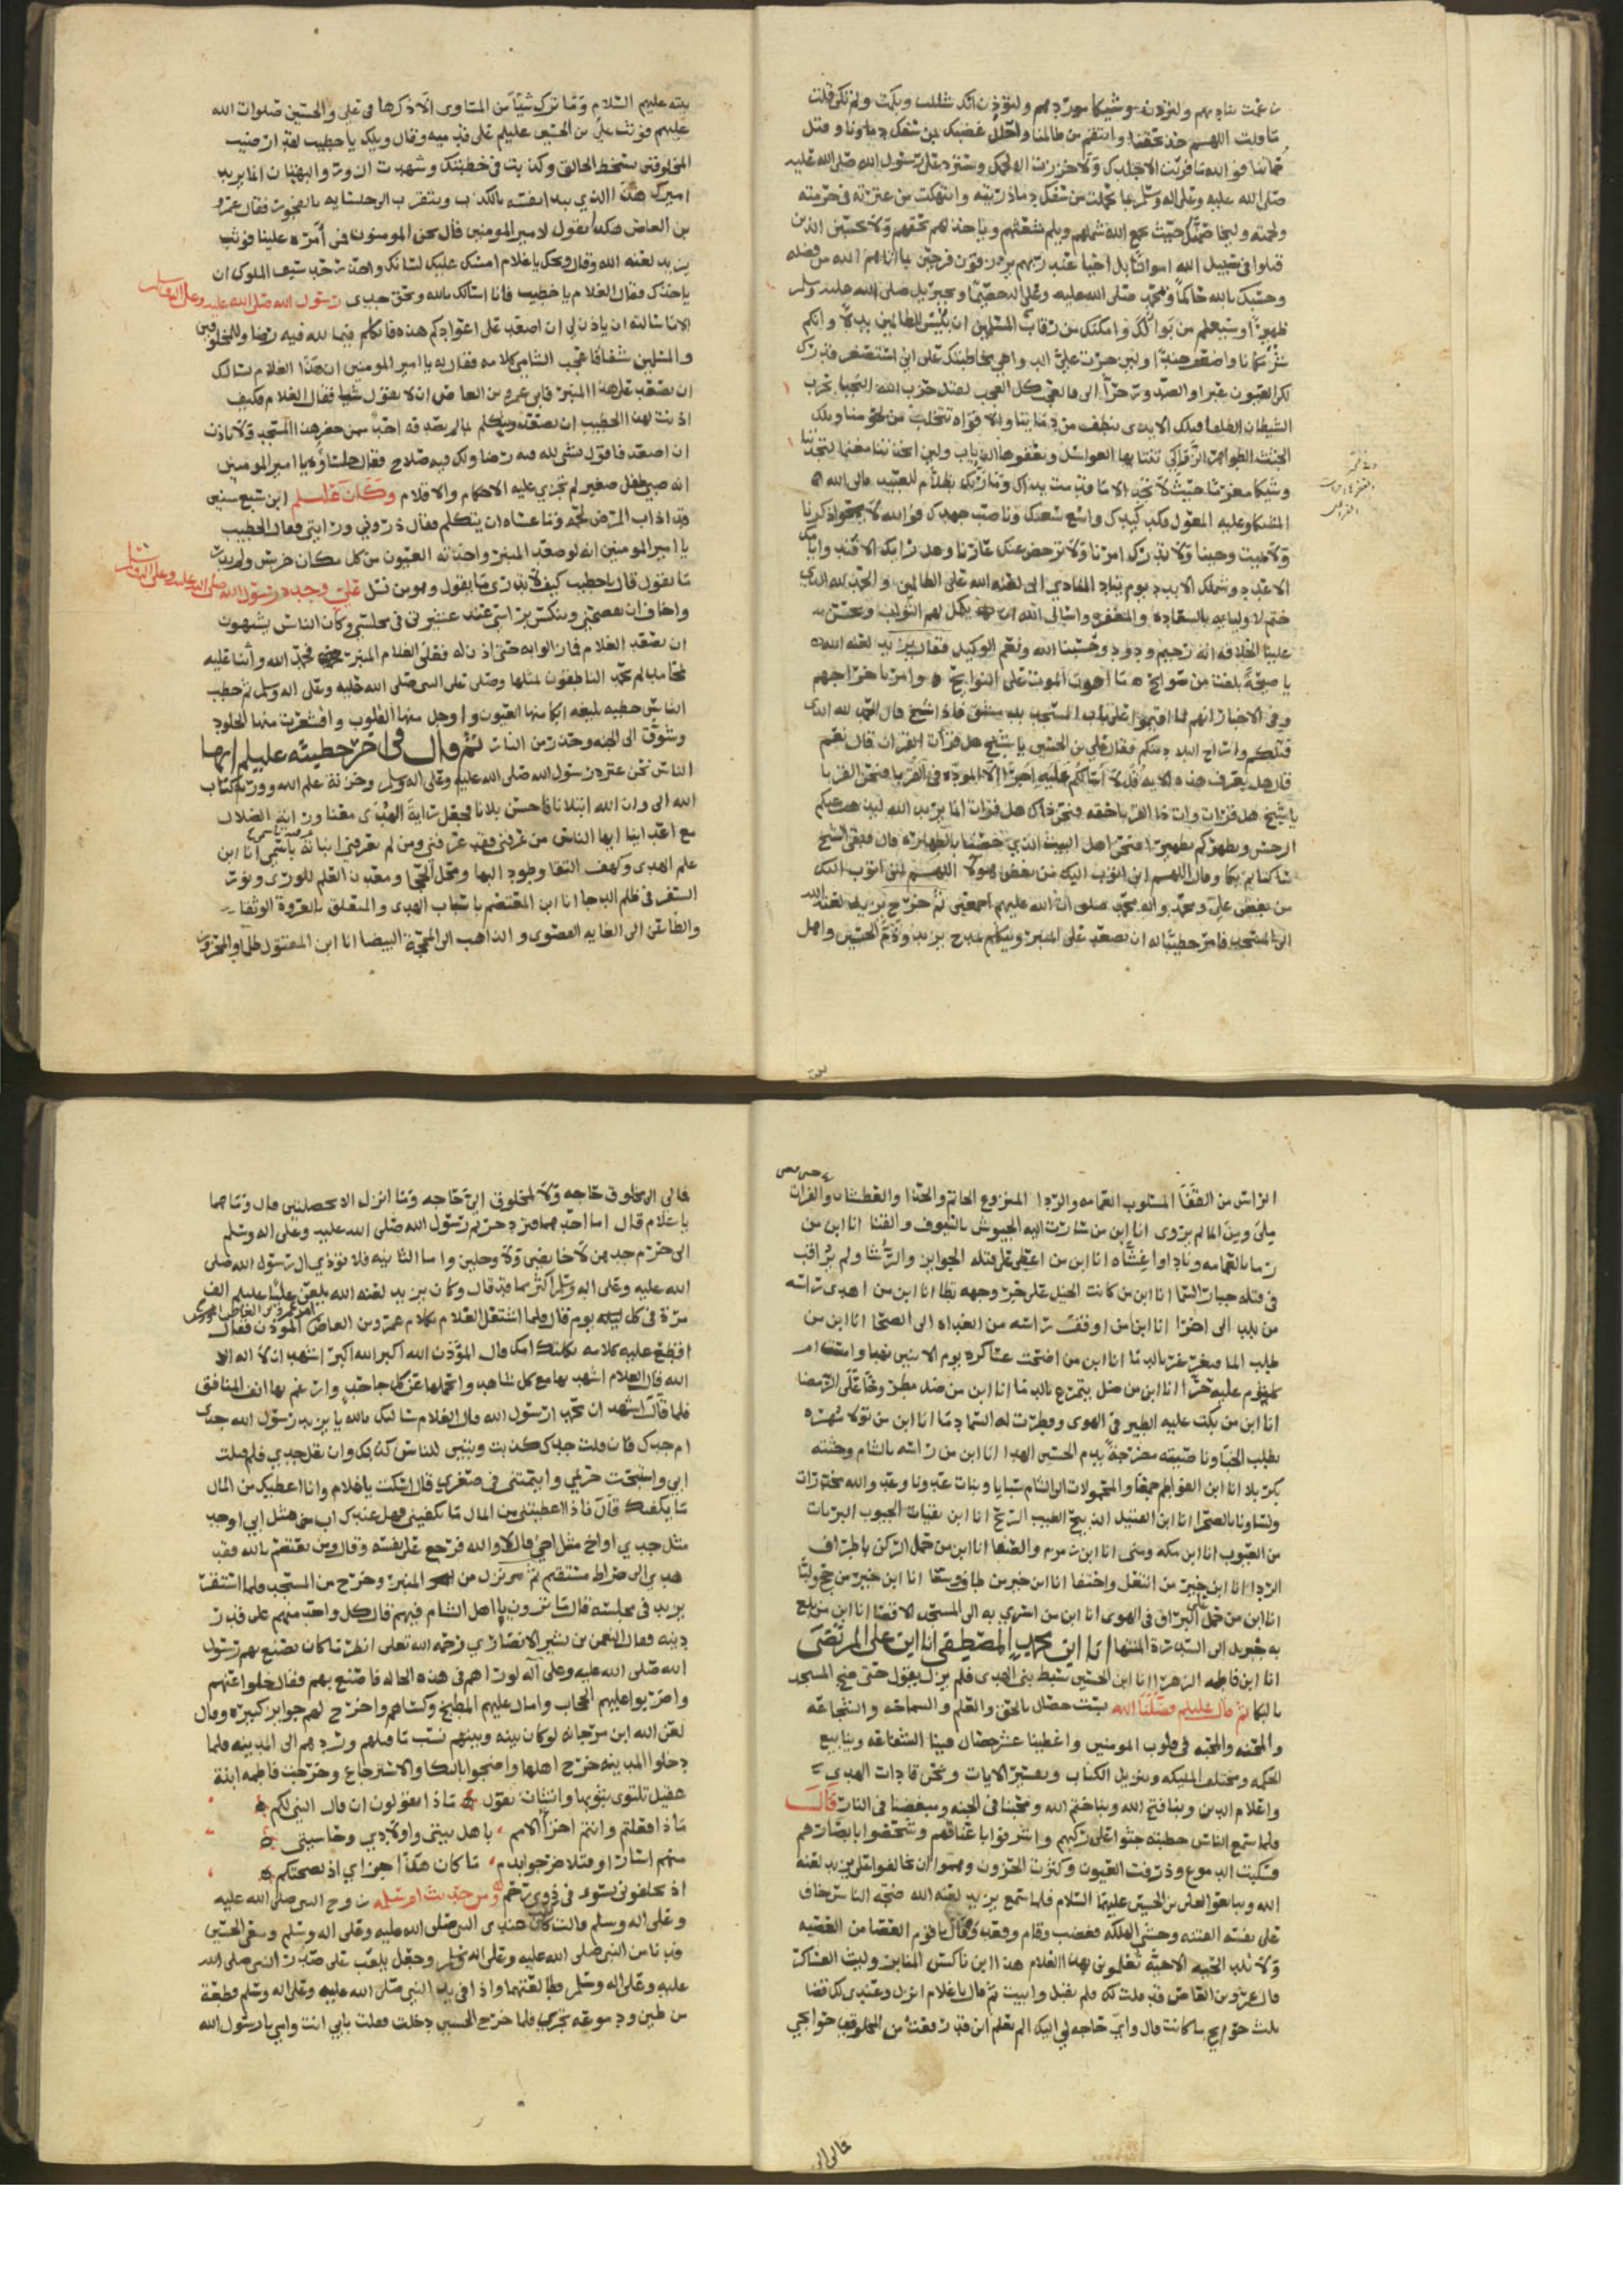 ولتردن وشيكا موردهم ولتودن انك شللت وبكمت ولم تكن قلت
ما قلت اللهم خذ بحقنا وانتقم من ظالمنا واحلل غضبك بمن سفك دماونا وقتل
حماتنا فوالله ما فريت الا جلدك ولا حززت الا لحمك وسترد على رسول الله صلى الله عليه
صلى الله عليه وعلى اله وسلم بما تحملت من سفك دما ذريته وانتهكت من عترته في حرمته
ولحمته حيث يجمع الله شملهم ويلم شعثهم وياخذ لهم بحقهم ولا تحسبن الذين
قتلوا في سبيل الله امواتا بل احيا عند ربهم يرزقون فرحين بما اتاهم الله من فضله
وحسبك بالله حاكما وبمحمد صلى الله عليه وعلى اله خصيما وبجبريل صلى الله عليه وسلم
ظهيرا وسيعلم من بوا لك وامكنك من رقاب المسلمين ان بئس للظالمين بدلا وانكم
شر مكانا واضعف جندا ولين جرت علي الدواهي مخاطبتك على اني استصغر قدرك
لكن العيون عبرا والصدور حرا الا فالعجب كل العجب لقتل حزب الله النجبا بحزب
الشيطان الطلقا فتلك الايدي تنطف من دماينا والافواه تتحلب من لحومنا وتلك
الجثث الطواهر الزواكي تنتابها العواسل وتعفوها الذياب ولين اتخذتنا مغنما لتجدنا
وشيكا مغرما حيث لا تجد الا ما قدمت يداك وما ربك بظلام للعبيد فالى الله
المشتكا وعليه المعول فكد كيدك واسع سعيك وناصب جهدك فوالله لا تمحوا ذكرنا
ولا تميت وحينا ولا تدرك امرنا ولا ترحض عنك عارنا وهل رايك الا فند وايامك
الا عدد وشملك الا بدد يوم ينادي المنادي الا لعنة الله على الظالمين والحمد لله الذي
ختم لاوليايه بالسعادة والمغفرة واسال الله ان يكمل لهم الثواب ويحسن
علينا الخلافة انه رحيم ودود وحسبنا الله ونعم الوكيل فقال يزيد لعنه الله
يا صيحة تحمد من صوايح ما اهون الموت على النوايح وامر باخراجهم
وفي الاخبار انهم لما اقيموا على باب المسجد بدمشق فاذا شيخ قال الحمد لله الذي
قتلكم واراح البلاد منكم فقال علي بن الحسين يا شيخ هل قرات القران قال نعم
قال هل تعرف هذه الايه قل لا اسالكم عليه اجرا الا المودة في القربا فنحن القربا
يا شيخ هل قرات وات ذا القربا حقه فنحن ذاك هل قرات انما يريد الله ليذهب عنكم
الرجس ويطهركم تطهيرا فنحن اهل البيت الذي خصنا بالطهارة قال فبقي الشيخ
ساكتا ثم بكا وقال اللهم اني اتوب اليك من بغض هولا اللهم اني اتوب اليك
من بغض علي ومحمد وال محمد صلوات الله عليهم اجمعين ثم خرج يزيد لعنه الله
الى المسجد فامر خطيبا له ان يصعد على المنبر ويتكلم بمدح يزيد وذم الحسين واهل
بيته عليهم السلام وما ترك شيا من المساوى الا ذكرها في علي والحسين صلوات الله
عليهم فوثب علي بن الحسين عليلم على قدميه وقال ويلك يا خطيب لقد ارضيت
المخلوقين بسخط الخالق وكذبت في خطبتك وشهدت الزور والبهتان انما يريد
اميرك هذا الذي يبدا نفسه بالكذب ويتقرب الى جلسايه بالفجور فقال عمرو
بن العاص هكذا تقول لامير المومنين قال نحن المومنون فمن امره علينا فوثب
يزيد لعنه الله وقال ويحك يا غلام امسك عليك لسانك واحذر حد سيف الملوك ان
ياخذك فقال الغلام يا خطيب فانا اسالك بالله وبحق جدي رسول الله صلى الله عليه وعلى اله وسلم
الا ما سالته ان ياذن لي ان اصعد على اعوادكم هذه فاتكلم فيما لله فيه رضا وللمخلوقين
والمسلمين شفا فاعجب الشامي كلامه فقال له يا امير المومنين ان هذا الغلام يسالك
ان يصعد على هذا المنبر فابى عمرو بن العاص ان لا يقول شيا فقال الغلام فكيف
اذنت لهذا الخطيب ان يصعد ويتكلم بما لم يصدق فيه احد ممن حضر هذا المسجد ولا تاذن
ان اصعد فاقول شي لله فيه رضا ولك فيه صلاح فقال جلساؤه يا امير المومنين
انه صبي طفل صغير لم تجري عليه الاحكام والاقلام وكان عليلم ابن سبع سنين
وقد اذاب المرض لحمه وما عساه ان يتكلم فقال ذروني ورايتي فقال الخطيب
يا امير المومنين انه لو صعد المنبر واخذته العيون من كل مكان خرس ولم يدر
ما يقول قال يا خطيب كيف لا يدري ما يقول وهو من نسل علي وجده رسول الله صلى الله عليه وعلى اله وسلم
واخاف ان يفضحني وينكس راسي عند عشيرتي في مجلسي وكان الناس يشتهون
ان يصعد الغلام فما زالوا به حتى اذن له فعلى الغلام المنبر فحمد الله واثنا عليه
بمحامد لم يحمد الناطقون بمثلها وصلى على النبي صلى الله عليه وعلى اله وسلم ثم خطب
الناس خطبه بليغه ابكا منها العيون واوجل منها القلوب واقشعرت منها الجلود
وشوق الى الجنه وحذر من النار ثم قال في اخر خطبته عليلم ايها
الناس نحن عترة رسول الله صلى الله عليه وعلى اله وسلم وخزنة علم الله وورثة كتاب
الله الا وان الله ابتلانا فاحسن بلانا فجعل راية الهدى معنا وراية الضلال
مع اعداينا ايها الناس من عرفني فقد عرفني ومن لم يعرفني انباته باسمي انا ابن
علم الهدى وكهف التقا وطود البها ومحل الحجى ومعدن العلم للورى ونور
السفر في ظلم الدجا انا ابن المعتصم باسباب الهدى والمتعلق بالعروة الوثقا
والطاعن الى الغايه القصوى والذاهب الى المحجة البيضا انا ابن المقتول ظلما والمحزوز
الراس من القفا المسلوب العمامه والردا المنزوع الخاتم والحذا والعطشان والفرات
ملئ وبين الما لم يروى انا ابن من سارت اليه الجيوش بالسيوف والقنا انا ابن من
رما بالعمامه ونادا واغشاه انا ابن من اعطى على قتله الجوايز والرشا ولم يراقب
في قتله جبار السما انا ابن من كانت الخيل على حر وجهه تطا انا ابن من اهدي راسه
من بلد الى اخرا انا ابن من اوقف راسه من الغداه الى الضحا انا ابن من
طلب الما فنحر نحره بالدما انا ابن من افتحت عساكره يوم الاثنين نهبا
كلثوم عليه حزنا انا ابن من ضل يتمرغ بالدما انا ابن من ضل مطرحا على الرمضا
انا ابن من بكت عليه الطير في الهوى وقطرت له السما دما انا ابن من
يطلب الخبا ونا صبيته مضرجه بدم الحسين الهدا انا ابن من راسه بالشام وجثته
بكربلا انا ابن الفواطم جمعا والمحمولات الى الشام سبايا وبنات عدونا وعدو الله مخدرات
ونساونا بالصحرا انا ابن القتيل الذبيح الطيب الريح انا ابن نقيات الجيوب البريات
من العيوب انا ابن مكه ومنى انا ابن زمزم والصفا انا ابن من حمل الركن باطراف
الردا انا ابن خير من انتعل واحتفا انا ابن خير من طاف وسعا انا ابن خير من حج ولبا
انا ابن من حمل على البراق في الهوى انا ابن من اسري به الى المسجد الاقصا انا ابن من بلغ
به جبريل الى السدرة المنتها انا ابن محمد المصطفى انا ابن علي المرتضى
انا ابن فاطمه الزهرا انا ابن الحسين سبط نبي الهدى فلم يزل يقول حتى ضج المسجد
بالبكا ثم قال عليلم فضلنا الله بست خصال بالحق والعلم والسماحه والشجاعه
والمحنه والمحبه في قلوب المومنين واعطينا عشر خصال فينا الشفاعه وينابيع
الحكمه ومختلف المليكه وتنزيل الكتاب وتفسير الايات ونحن قادات الهدى
واعلام الدين وبنا فتح الله وبنا ختم الله ومحبنا في الجنه ومبغضنا في النار قال
فلما سمع الناس خطبته جثوا على ركبهم واشرفوا باعناقهم وشخصوا بابصارهم
وسكبت الدموع وذرفت العيون وكثرت الحزون وهموا ان يخالفوا على يزيد لعنه
الله ويبايعوا لعلي بن الحسين عليهما السلام فلما سمع يزيد لعنه الله ضجة الناس خاف
على نفسه الفتنه وخشي الهلكه فغضب وقام وقعد وقال يا قوم القضا من القضيه
ولا تلد الحيه الا حيه تعلمون بهذا الغلام هذا ابن ناكس المنابر وليث العساكر
قال عمرو بن العاص قد قلت لك فلم تقبل وابيت ثم قال يا غلام انزل وعندي لك قضا
ثلث حوايج ما كانت قال واي حاجه لي اليك الم تعلم اني قد رفعت من المخلوقين حوايجي
فما لي الى مخلوق حاجه ولا لمخلوق الي حاجه وما انزل الا بخصلتين قال وما هما
يا غلام قال اما احدهما فترد حرم رسول الله صلى الله عليه وعلى اله وسلم
الى حرم جدهن لا خايفين ولا وجلين واما الثانيه فلا توذي ال رسول الله صلى
الله عليه وعلى اله وسلم اكثر مما قد قال وكان يزيد لعنه الله يلعن عليا عليلم الف
مرة في كل يوم قال فلما اشتغل الغلام بكلام عمرو بن العاص الموذن فقال
اقطع عليه كلامه ثكلتك امك قال المؤذن الله اكبر الله اكبر اشهد ان لا اله الا
الله قال الغلام اشهد بها مع كل شاهد واتحملها عن كل جاحد وارغم بها انف المنافق
فلما قال اشهد ان محمدا رسول الله قال الغلام سالتك بالله يا يزيد رسول الله جدي
ام جدك فان قلت جدك كذبت وتبين للناس كذبك وان تقل جدي فلم قتلت
ابي واستبحت حريمي وايتمتني في صغري قال اسكت يا غلام وانا اعطيك من المال
ما يكفيك قال فاذا اعطيتني من المال ما يكفيني فهل عندك اب مثل ابي او جد
مثل جدي او اخ مثل اخي قال لا والله فرجع على نفسه وقال ومن يعتصم بالله فقد
هدي الى صراط مستقيم ثم نزل من المنبر وخرج من المسجد فلما استقر
يزيد في مجلسه قال ما ترون يا اهل الشام فيهم قال كل واحد منهم على قدر
دينه فقال النعمن بن بشير الانصاري رحمه الله تعلى انظر ما كان يصنع بهم رسول
الله صلى الله عليه وعلى آله لو راهم في هذه الحاله فاصنع بهم فقال خلوا عنهم
واضربوا عليهم الحجاب وامال عليهم المطبخ وكساهم واخرج لهم جوايز كبيره وقال
لعن الله ابن مرجانه لو كان بينه وبينهم نسب ما قتلهم وردهم الى المدينه فلما
دخلوا المدينه خرج اهلها وضجوا بالبكا والاسترجاع وخرجت فاطمه ابنة
عقيل تلتوى بثوبها وانشات تقول ماذا تقولون ان قال النبي لكم
ماذا فعلتم وانتم اخر الامم باهل بيتي واولادي وخاستي
منهم اسارا وقتلا ضرجوا بدم ما كان هذا جزاي اذ نصحتكم
اذ تخلفوني بسوء في ذوي رحم ومن حديث ام سلمه زوج النبي صلى الله عليه
وعلى اله وسلم قالت كان عندي النبي صلى الله عليه وعلى اله وسلم ومعي الحسين
فدنا من النبي صلى الله عليه وعلى اله وسلم وجعل يلعب على صدر النبي صلى الله
عليه وعلى اله وسلم فطالعتهما واذا في يد النبي صلى الله عليه وعلى اله وسلم قطعة
من طين ودموعه تجري فلما خرج الحسين دخلت فقلت بابي انت وامي يا رسول الله